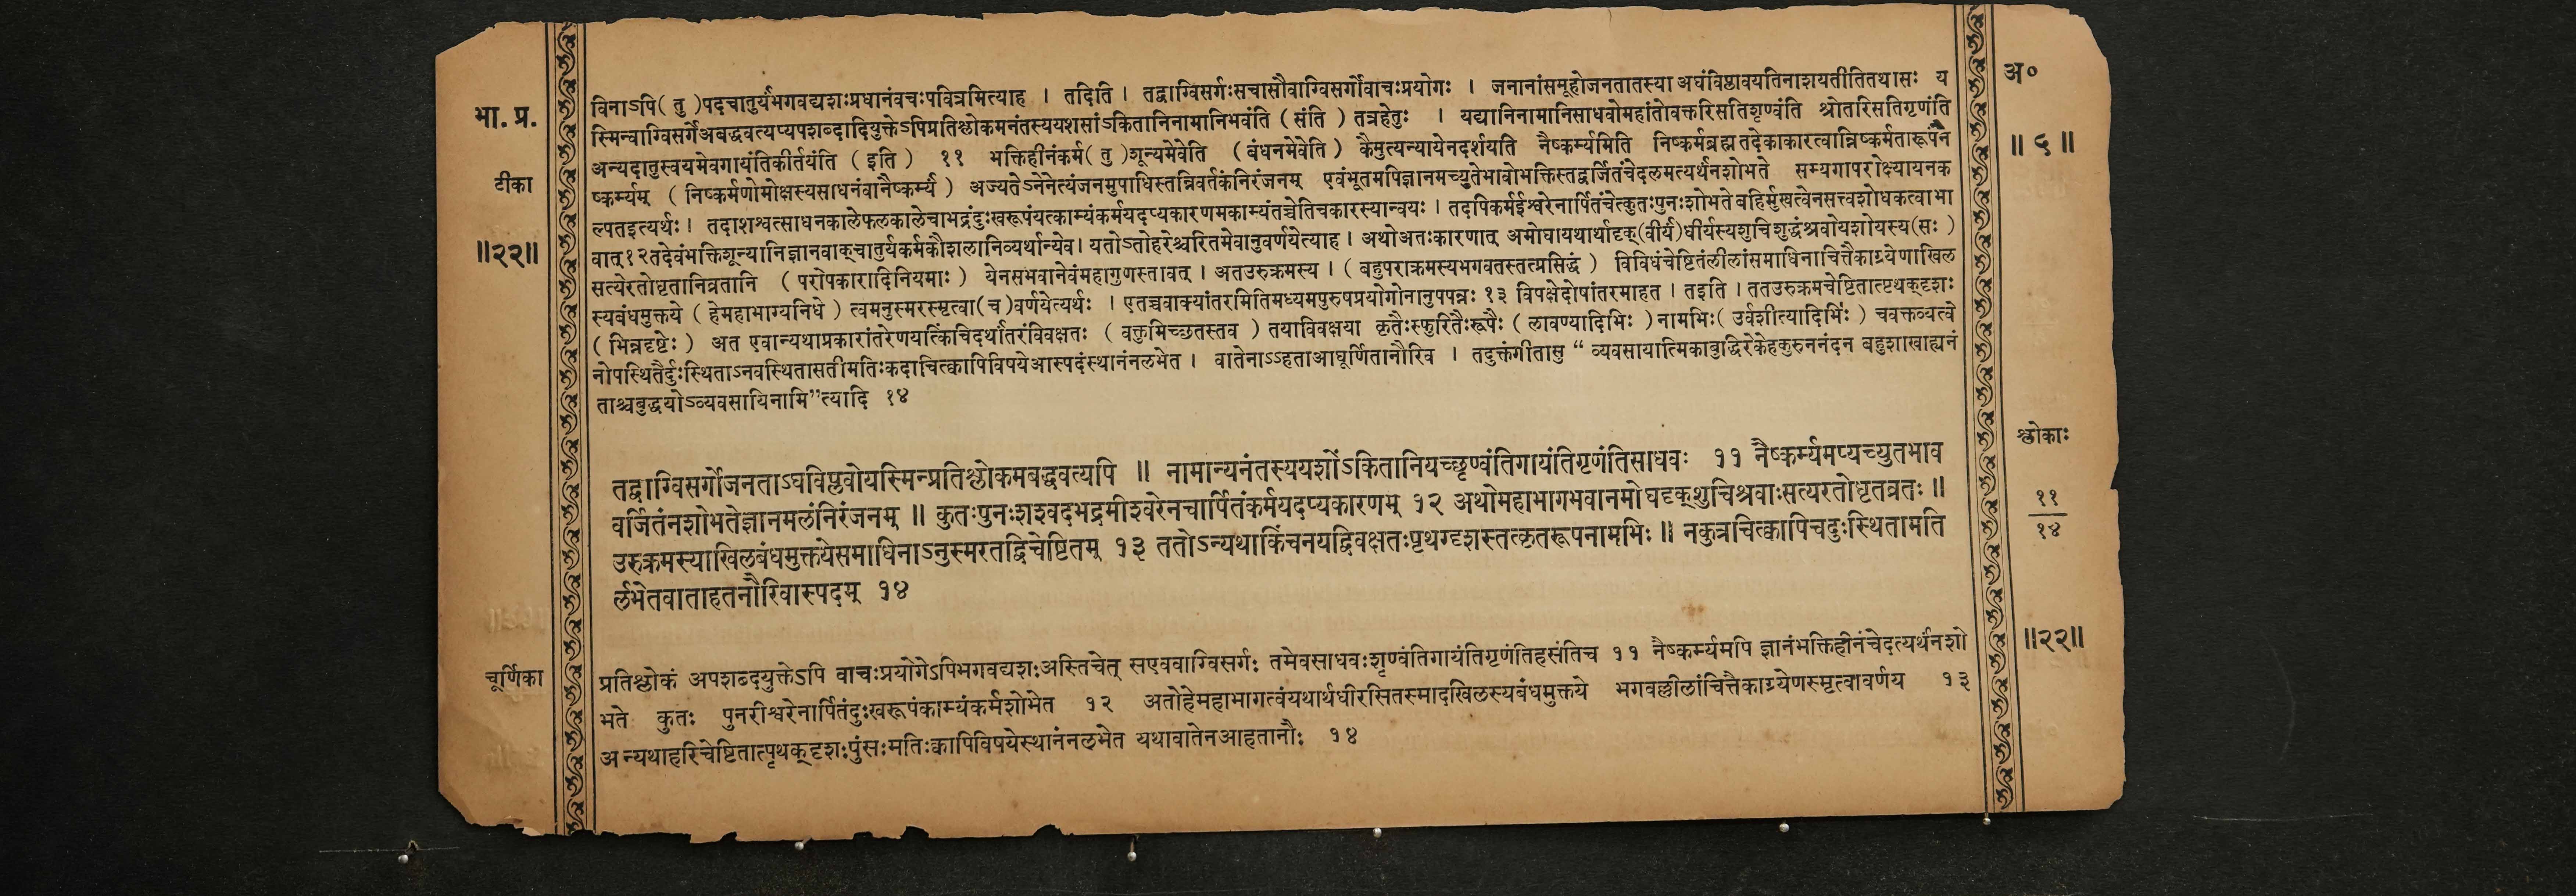 भा. प्र.
टीका
॥२२॥
विनाऽपि( तु )पदचातुर्यंभगवद्यशःप्रधानंवचःपवित्रमित्याह । तदिति । तद्वाग्विसर्गःसचासौवाग्विसर्गोवाचःप्रयोगः । जनानांसमूहोजनतातस्या अघंविप्लावयतिनाशयतीतितथासः य
स्मिन्वाग्विसर्गेअबद्धवत्यप्यपशब्दादियुक्तेऽपिप्रतिश्लोकमनंतस्ययशसांऽकितानिनामानिभवंति ( संति ) तत्रहेतुः । यद्यानिनामानिसाधवोमहांतोवक्तरिसतिशृण्वंति श्रोतरिसतिगृणंति
अन्यदातुस्वयमेवगायंतिकीर्तयंति ( इति ) ११ भक्तिहीनंकर्म( तु )शून्यमेवेति ( बंधनमेवेति ) कैमुत्यन्यायेनदर्शयति नैष्कर्म्यमिति निष्कर्मब्रह्म तदेकाकारत्वान्निष्कर्मतारूपंनै
ष्कर्म्यम् ( निष्कर्मणोमोक्षस्यसाधनंवानैष्कर्म्यं ) अज्यतेऽनेनेत्यंजनमुपाधिस्तन्निवर्तकंनिरंजनम् एवंभूतमपिज्ञानमच्युतेभावोभक्तिस्तद्वर्जितंचेदलमत्यर्थंनशोभते सम्यगापरोक्ष्यायनक
ल्पतइत्यर्थः। तदाशश्वत्साधनकालेफलकालेचाभद्रंदुःखरूपंयत्काम्यंकर्मयदप्यकारणमकाम्यंतच्चेतिचकारस्यान्वयः । तदपिकर्मईश्वरेनार्पितंचेत्कुतःपुनःशोभते बहिर्मुखत्वेनसत्त्वशोधकत्वाभा
वात्१२तदेवंभक्तिशून्यानिज्ञानवाक्चातुर्यकर्मकौशलानिव्यर्थान्येव। यतोऽतोहरेश्चरितमेवानुवर्णयेत्याह । अथोअतःकारणात् अमोघायथार्थादृक्(वीर्यं)धीर्यस्यशुचिशुद्धंश्रवोयशोयस्य(सः )
सत्येरतोधृतानिव्रतानि ( परोपकारादिनियमाः ) येनसभवानेवंमहागुणस्तावत् । अतउरुक्रमस्य । ( बहुपराक्रमस्यभगवतस्तत्प्रसिद्धं ) विविधंचेष्टितंलीलांसमाधिनाचित्तैकाग्र्येणाखिल
स्यबंधमुक्तये ( हेमहाभाग्यनिधे ) त्वमनुस्मरस्मृत्वा(च)वर्णयेत्यर्थः । एतच्चवाक्यांतरमितिमध्यमपुरुषप्रयोगोनानुपपन्नः १३ विपक्षेदोषांतरमाहत । तइति । ततउरुक्रमचेष्टितात्पृथक्दृशः
( भिन्नदृष्टेः ) अत एवान्यथाप्रकारांतरेणयत्किंचिदर्थांतरंविवक्षतः ( वक्तुमिच्छतस्तव ) तयाविवक्षया कृतैःस्फुरितैःरूपैः ( लावण्यादिभिः )नामभिः( उर्वशीत्यादिभिः ) चवक्तव्यत्वे
नोपस्थितैर्दुःस्थिताऽनवस्थितासतीमतिःकदाचित्क्वापिविषयेआस्पदंस्थानंनलभेत । वातेनाऽऽहताआघूर्णितानौरिव । तदुक्तंगीतासु “ व्यवसायात्मिकाबुद्धिरेकेहकुरुननंदन बहुशाखाह्यनं
ताश्चबुद्धयोऽव्यवसायिनामि”त्यादि १४
तद्वाग्विसर्गोजनताऽघविप्लवोयस्मिन्प्रतिश्लोकमबद्धवत्यपि ॥ नामान्यनंतस्ययशोंऽकितानियच्छृण्वंतिगायंतिगृणंतिसाधवः ११ नैष्कर्म्यमप्यच्युतभाव
वर्जितंनशोभतेज्ञानमलंनिरंजनम् ॥ कुतःपुनःशश्वदभद्रमीश्वरेनचार्पितंकर्मयदप्यकारणम् १२ अथोमहाभागभवानमोघदृक्शुचिश्रवाःसत्यरतोधृतव्रतः ॥
उरुक्रमस्याखिलबंधमुक्तयेसमाधिनाऽनुस्मरतद्विचेष्टितम् १३ ततोऽन्यथाकिंचनयद्विवक्षतःपृथग्दृशस्तत्कृतरूपनामभिः ॥ नकुत्रचित्क्वापिचदुःस्थितामति
र्लभेतवाताहतनौरिवास्पदम् १४
चूर्णिका
प्रतिश्लोकं अपशब्दयुक्तेऽपि वाचःप्रयोगेऽपिभगवद्यशःअस्तिचेत् सएववाग्विसर्गः तमेवसाधवःशृण्वंतिगायंतिगृणंतिहसंतिच ११ नैष्कर्म्यमपि ज्ञानंभक्तिहीनंचेदत्यर्थंनशो
भते कुतः पुनरीश्वरेनार्पितंदुःखरूपंकाम्यंकर्मशोभेत १२ अतोहेमहाभागत्वंयथार्थधीरसितस्मादखिलस्यबंधमुक्तये भगवल्लीलांचित्तैकाग्र्येणस्मृत्वावर्णय १३
अन्यथाहरिचेष्टितात्पृथक्दृशःपुंसःमतिःक्वापिविषयेस्थानंनलभेत यथावातेनआहतानौः १४
अ०
॥ ५ ॥
श्लोकाः
११
१४
॥२२॥